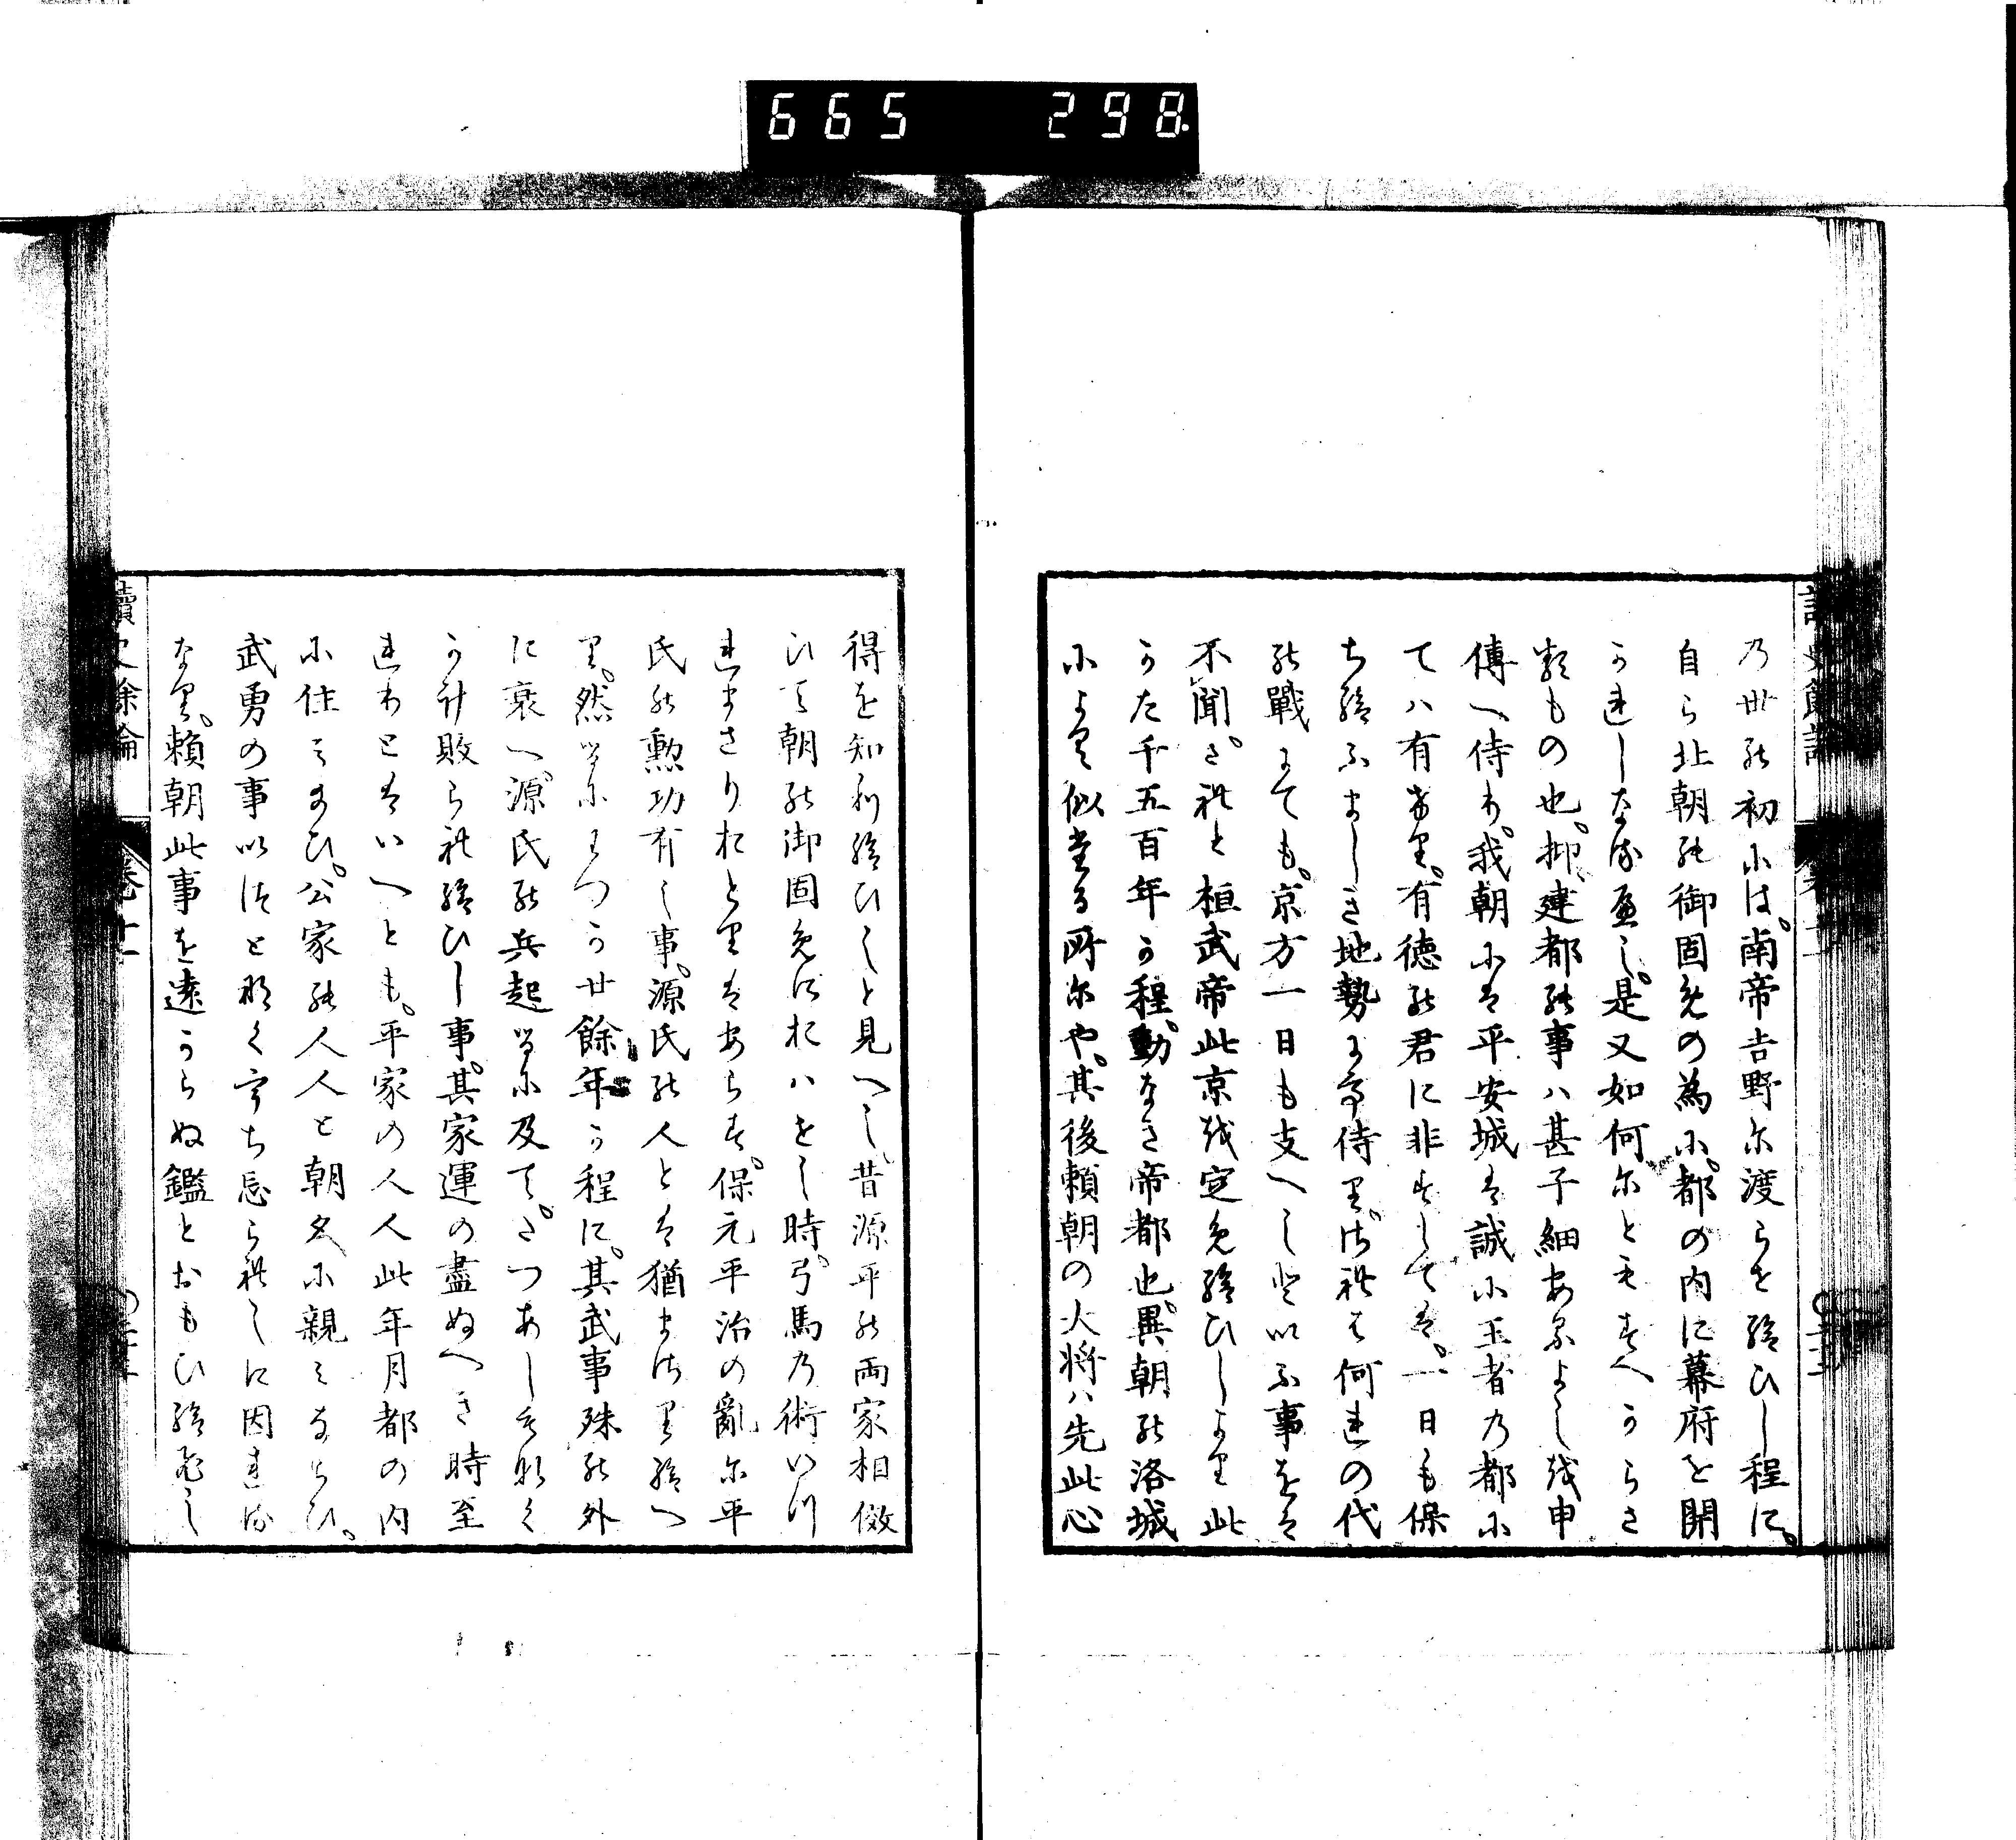 665 298
乃世能初には。南帝吉野に渡らせ給ひし程に。
自ら北朝能御固めの為に。都の内に幕府を開
かれしなるべし。是又如何にともすべからさ
るもの也。抑建都能事ハ甚子細あるよしを申
傳へ侍り。我朝には平安城は誠に王者乃都に
てハ有なり。有徳能君に非すしては。一日も保
ち給ふましき地勢にて侍り。されは何れの代
能戰にても。京方一日も支へしといふ事をは
不聞。されと桓武帝此京を定め給ひしより此
かた千五百年か程。動なき帝都也。異朝能洛城
によく似たる所にや。其後頼朝の大将ハ先此心
得を知り給ひしと見へし。昔源平能両家相傚
ひて朝能御固めにおハせし時。弓馬乃術いつ
れまさりおとりはあらす。保元平治の亂に平
氏能勲功有し事。源氏能人とは猶まさり給へ
り。然るにわつか廿餘年か程に。其武事殊能外
に衰へ。源氏能兵起るに及て。さつあしもなく
かけ敗られ給ひし事。其家運の盡ぬへき時至
れりとはいへとも。平家の人人此年月都の内
に住み給ひ。公家能人人と朝夕に親みならひ。
武勇の事いつとなくうち忘られしに因れる
なり。頼朝此事を遠からぬ鑑とおもひ給ひし
讀史餘論 巻十一